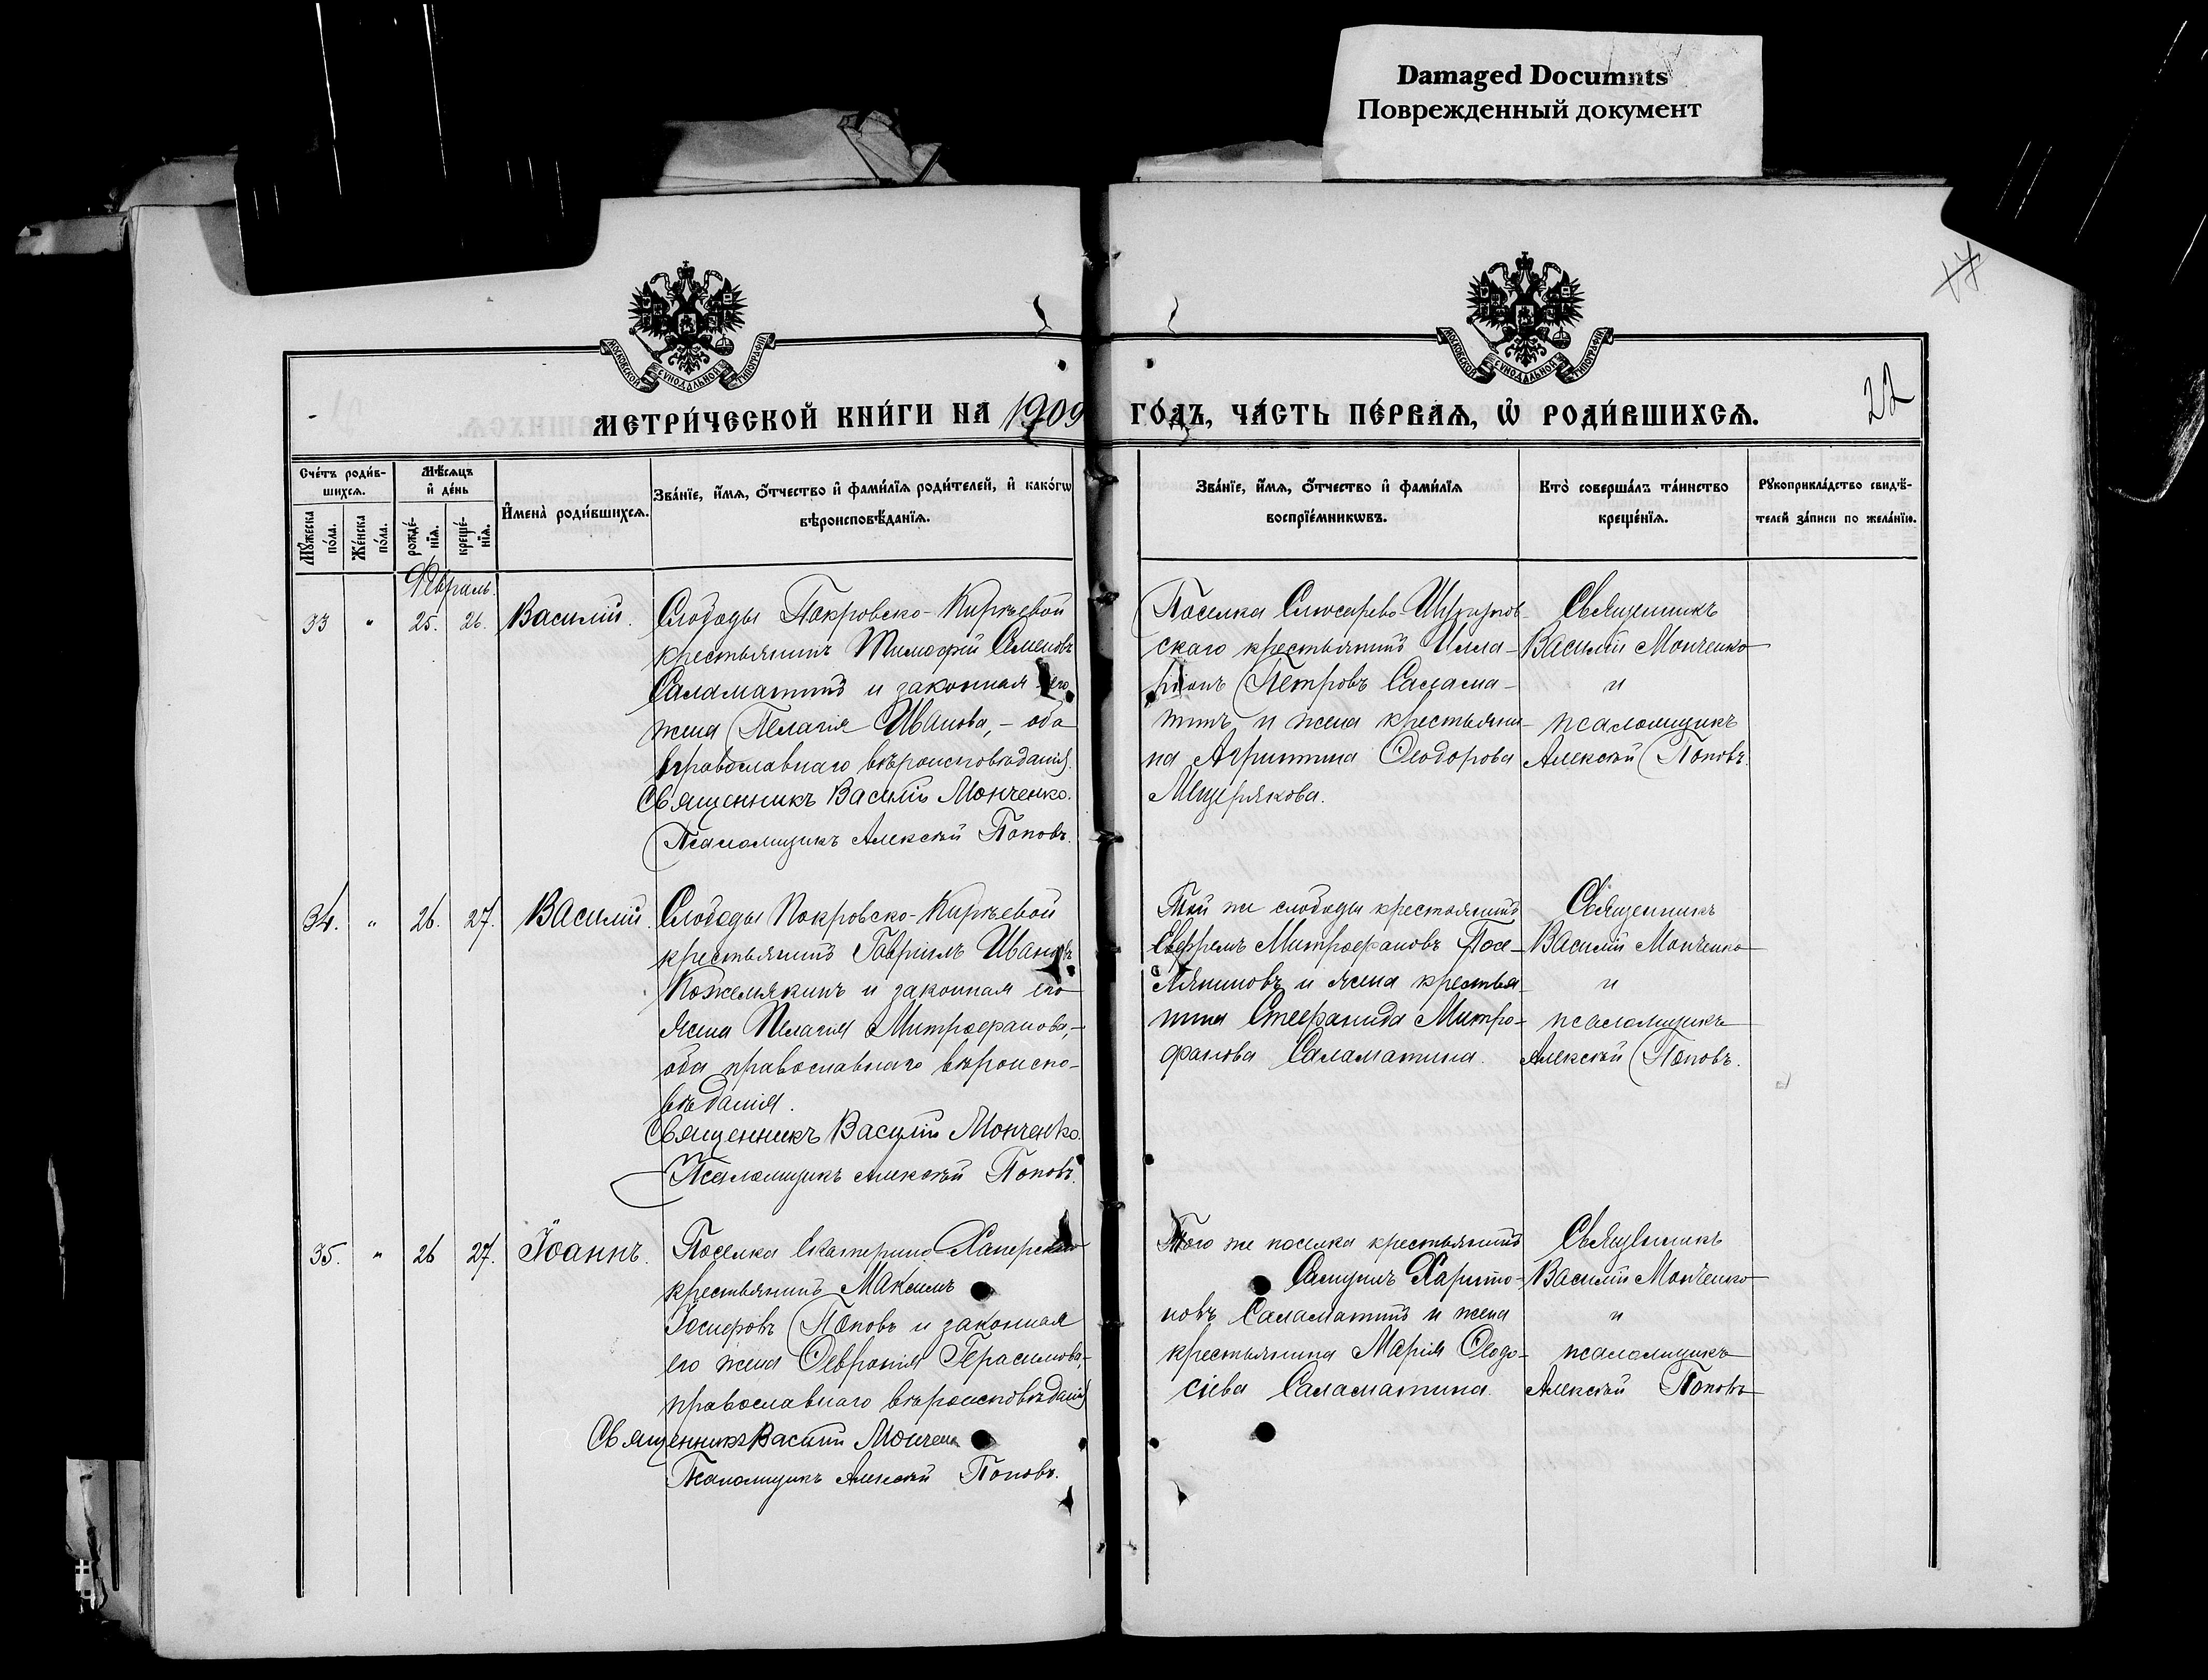 Damaged Documnts
Поврежденный документ
17
22
МОСКОВСКОЙ СѴНОДАЛЬНОЙ ТИПОГРАФІИ
МОСКОВСКОЙ СѴНОДАЛЬНОЙ ТИПОГРАФІИ
МЕТРИ́ЧЕСКОЙ КНИ́ГИ НА 1909 ГО́ДЪ, ЧА́СТЬ ПЕ́РВАѦ, Ѡ҆ РОДИ́ВШИХСѦ.
Сче́тъ роди́в-
шихсѧ.
Мꙋ́жеска по́ла.
Же́нска по́ла.
Мѣ́сѧцъ
и҆ де́нь
рожде́-
нїѧ.
креще́-
нїѧ.
И҆мена̀ роди́вшихсѧ.
Зва́нїе, и҆́мѧ, ѻ҆́тчество и҆ фами́лїѧ роди́телей, и҆ како́гѡ
вѣроисповѣ́данїѧ.
Зва́нїе, и҆́мѧ, ѻ҆́тчество и҆ фами́лїѧ
воспрїе́мникѡвъ.
Кто̀ соверша́лъ та́инство
креще́нїѧ.
Рꙋкоприкла́дство свидѣ́-
телей за́писи по жела́нїю.
Февраль.
33 " 25. 26. Василій.
Слободы Покровско-Киреевой
крестьянинъ Тимофей Семеновъ
Саламатинъ и законная его
жена Пелагія Иванова, – оба
православнаго вѣроисповѣданія.
Священникъ Василій Монченко.
Псаломщикъ Алексѣй Поповъ.
Поселка Слюсарево-
скаго крестьянинъ Илла-
ріонъ Петровъ Салама-
тинъ и жена крестьяни-
на Агриппина Ѳеодорова
Мещерякова.
Священникъ
Василій Монченко
и
псаломщикъ
Алексѣй Поповъ.
34. " 26. 27. Василій.
Слободы Покровско-Киреевой
крестьянинъ Гавріилъ Ивановъ
Кожемякинъ и законная его
жена Пелагія Митрофанова, –
оба православнаго вѣроиспо-
вѣданія.
Священникъ Василій Монченко.
Псаломщикъ Алексѣй Поповъ.
Той же слободы крестьянинъ
Евфремъ Митрофановъ Посе-
ляниновъ и жена крестья-
нина Стефанида Митро-
фанова Саламатина.
Священникъ
Василій Монченко
и
псаломщикъ
Алексѣй Поповъ.
35. " 26 27. Іоаннъ.
Поселка Екатерино-Хаперскаго
крестьянинъ Максимъ
Іосифовъ Поповъ и законная
его жена Ѳеврония Герасимова, –
православнаго вѣроисповѣданія
Священникъ Василій Монченк
Псаломщикъ Алексѣй Поповъ.
Того же поселка крестьянинъ
Самуилъ Харито-
новъ Саламатинъ и жена
крестьянина Марія Ѳеодо-
сіева Саламатина.
Священникъ
Василій Монченко
и
псаломщикъ
Алексѣй Поповъ